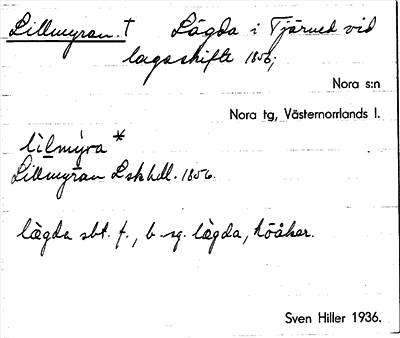 Lillmyran. † Lägda i Tjärned vid
lagaskifte 1856;
Nora s:n
Nora tg, Västernorrlands l.
lìlmýra *
Lillmyran Lskhdl. 1856.
lägda sbt. f., b. sg. lägda, höåker.
Sven Hiller 1936.